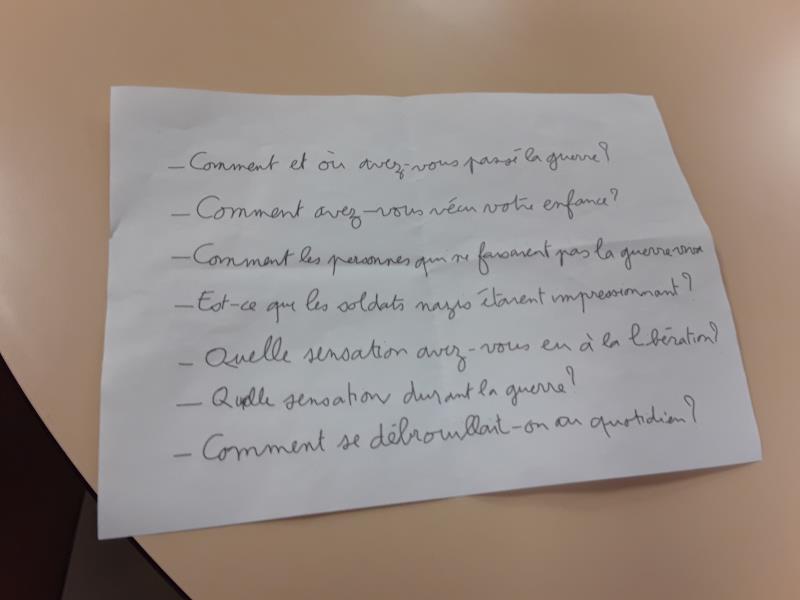 – Comment et où avez-vous passé la guerre?
– Comment avez-vous vécu votre enfance?
– Comment les personnes qui ne faisaient pas la guerre
– Est-ce que les soldats nazis étaient impressionnant?
– Quelle sensation avez-vous eu à la libération?
– Quelle sensation durant la guerre?
– Comment se débrouillait-on au quotidien?